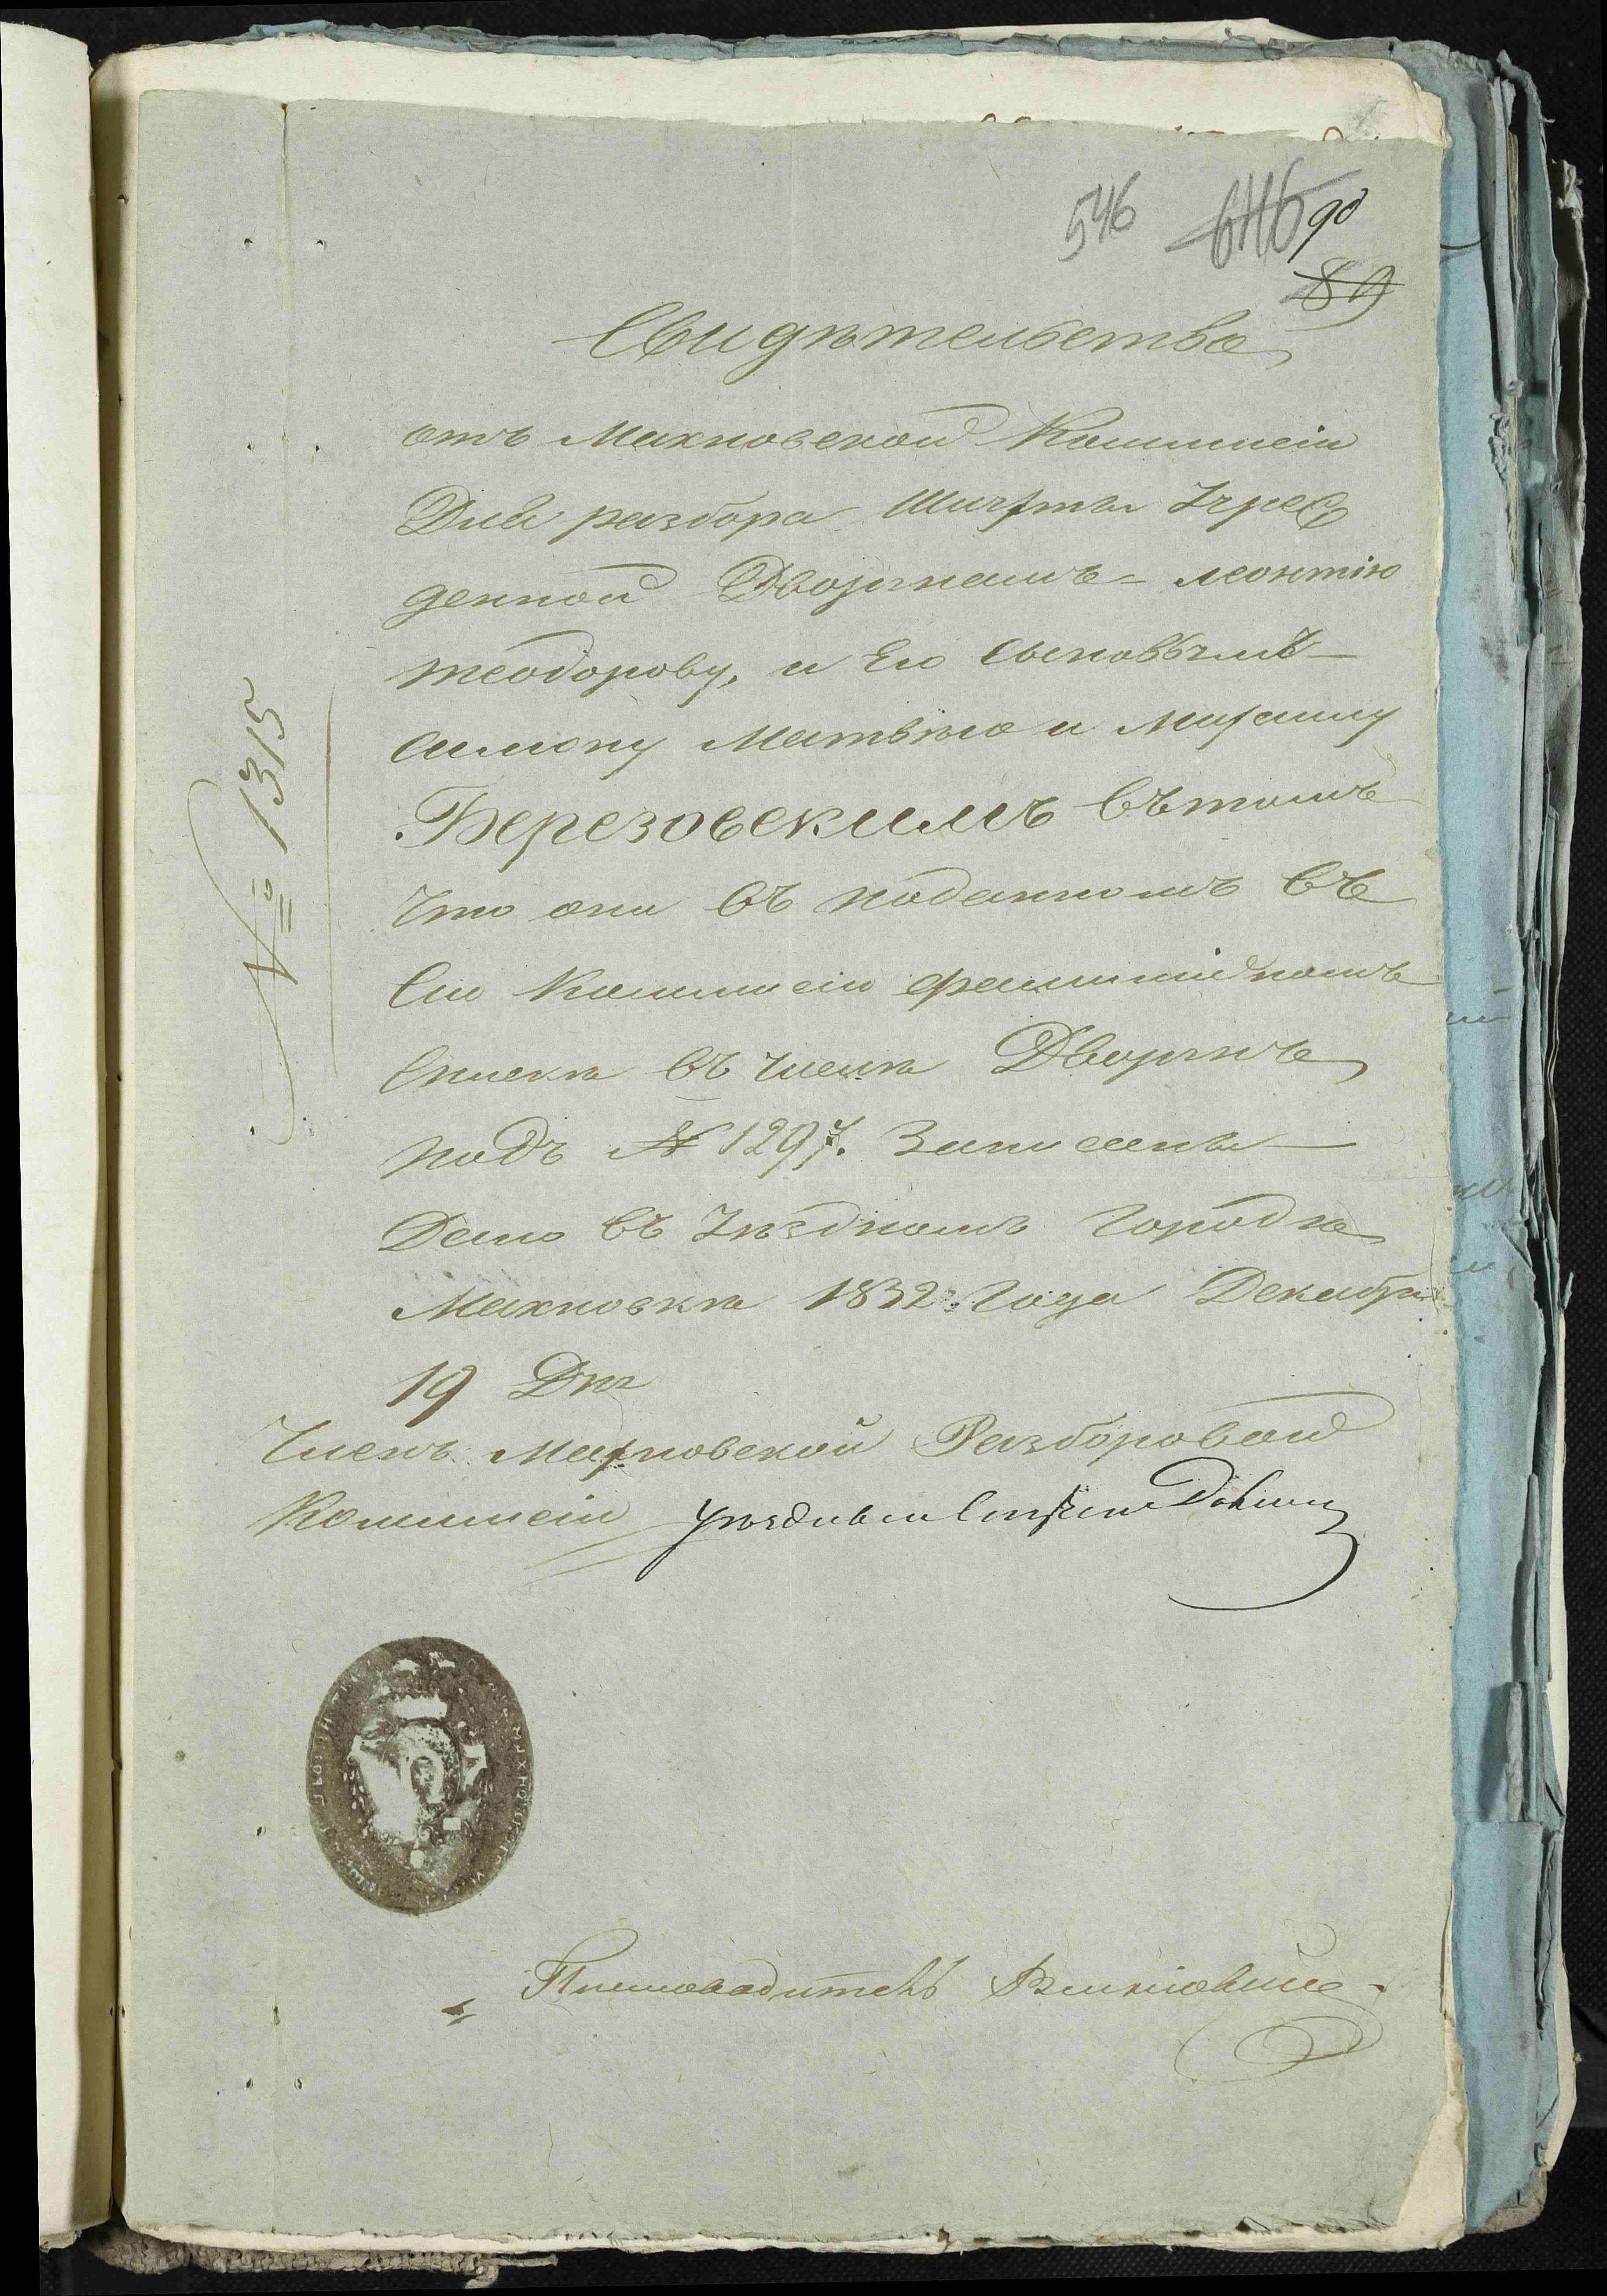 546 646 90
89
Свидѣтельство
отъ Махновской Коммисіи
Для разбора Шляхты Учреж
денной Дворянамъ - Леонтію
Теодорову, и Его Сыновьямъ
Симону Матвѣю и
Березовскимъ въ томъ
Что они въ поданномъ въ
Сію Коммисію фамилійномъ
Спискѣ въ числѣ Дворянъ
подъ № 1297. Записаны
Дано въ Уѣздномъ Городѣ
Махновкѣ 1832 Года Декабря
19 Дня
Членъ Махновской Разборовой
Коммисіи Уѣздный
Письмоводитель
№ 1315